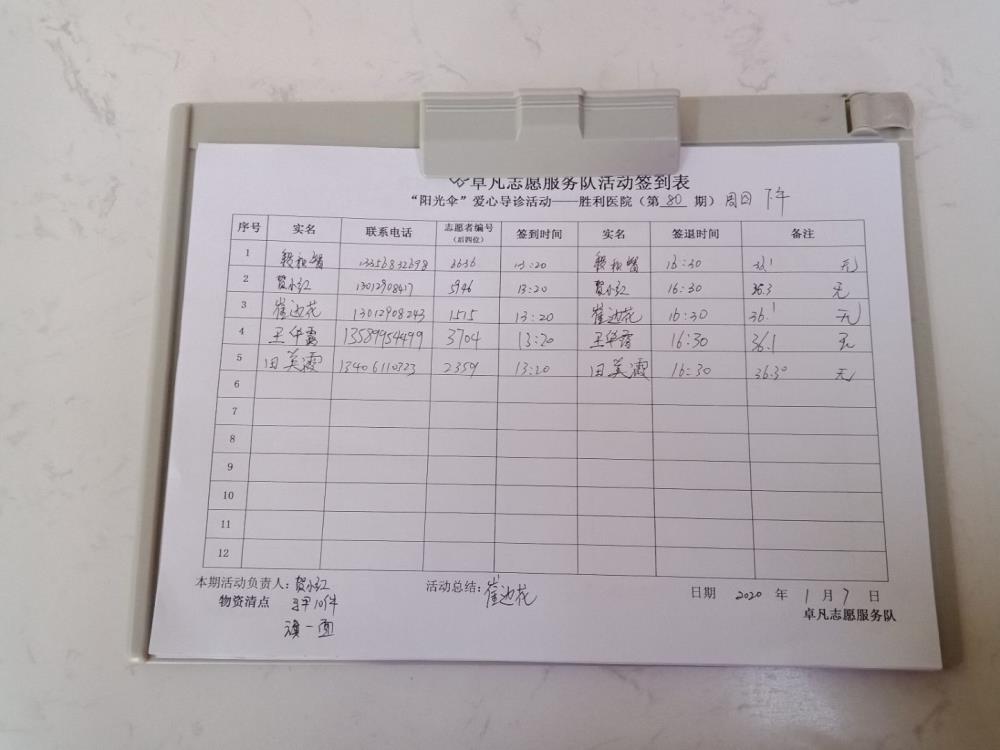 卓凡志愿服务队活动签到表
“阳光伞”爱心导诊活动——胜利医院（第 80 期）周四 下午
序号 实名 联系电话 志愿者编号（后四位） 签到时间 实名 签退时间 备注
1 13356832698 3636 13:20 16:30 无
2 贺小红 13012908417 5946 13:20 贺小红 16:30 36.3 无
3 崔边花 13012908243 1515 13:20 崔边花 16:30 36.1 无
4 王华露 13589954499 3704 13:20 王华露 16:30 36.1 无
5 田美霞 13406110323 2359 13:20 田美霞 16:30 36.3° 无
6
7
8
9
10
11
12
本期活动负责人：贺小红 活动总结：崔边花 日期 2020 年 1 月 7 日
物资清点 马甲10件 卓凡志愿服务队
旗一面